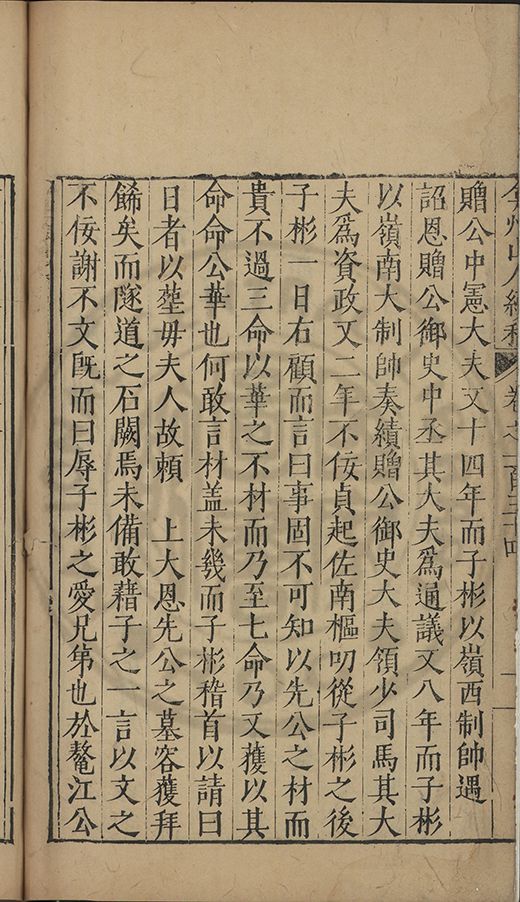 弇州山人續稿 卷之一百三十四
贈公中憲大夫又十四年而子彬以嶺西制帥遇
詔恩贈公御史中丞其大夫爲通議又八年而子彬
以嶺南大制帥奏績贈公御史大夫領少司馬其大
夫爲資政又二年不佞貞起佐南樞叨從子彬之後
子彬一日右顧而言曰事固不可知以先公之材而
貴不過三命以華之不材而乃至七命乃又獲以其
命命公華也何敢言材盖未幾而子彬稽首以請曰
日者以塟毋夫人故頼 上大恩先公之墓容獲拜
餙矣而隧道之石闕焉未備敢藉子之一言以文之
不佞謝不文旣而曰辱子彬之愛兄第也於鼇江公